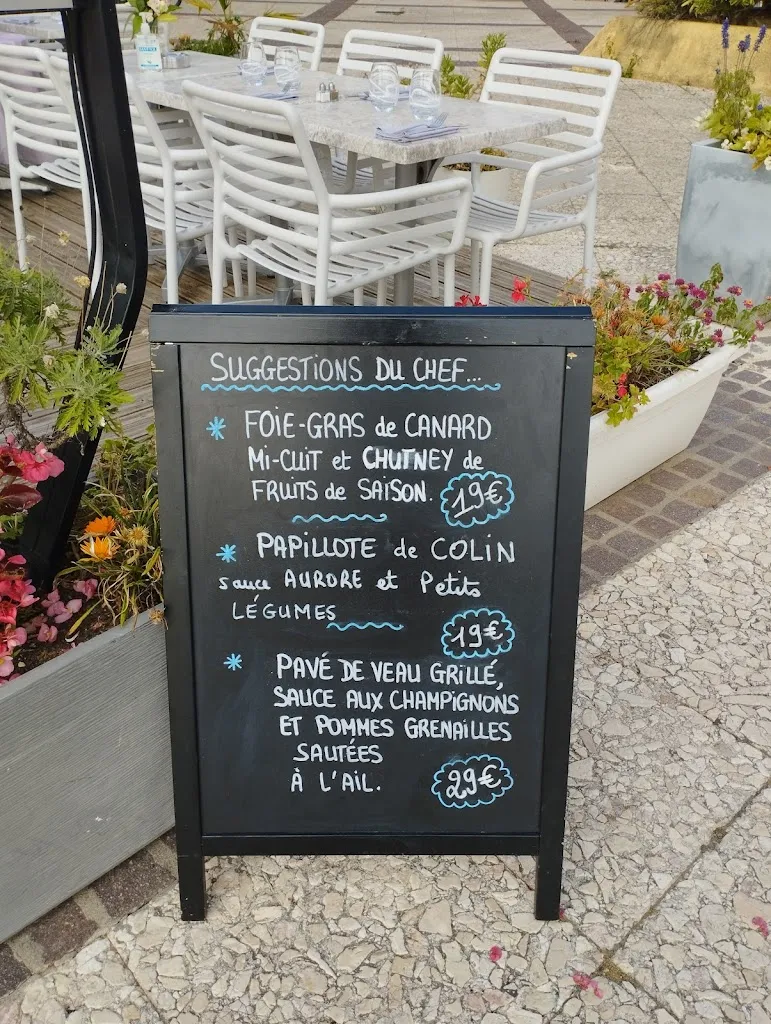 SUGGESTIONS DU CHEF...
* FOIE-GRAS de CANARD
MI-CUIT et CHUTNEY de
FRUITS de SAISON. 19€
* PAPILLOTE de COLIN
sauce AURORE et Petits
LÉGUMES
19€
* PAVÉ DE VEAU GRILLÉ,
SAUCE AUX CHAMPIGNONS
ET POMMES GRENAILLES
SAUTÉES
À L'AIL. 29€